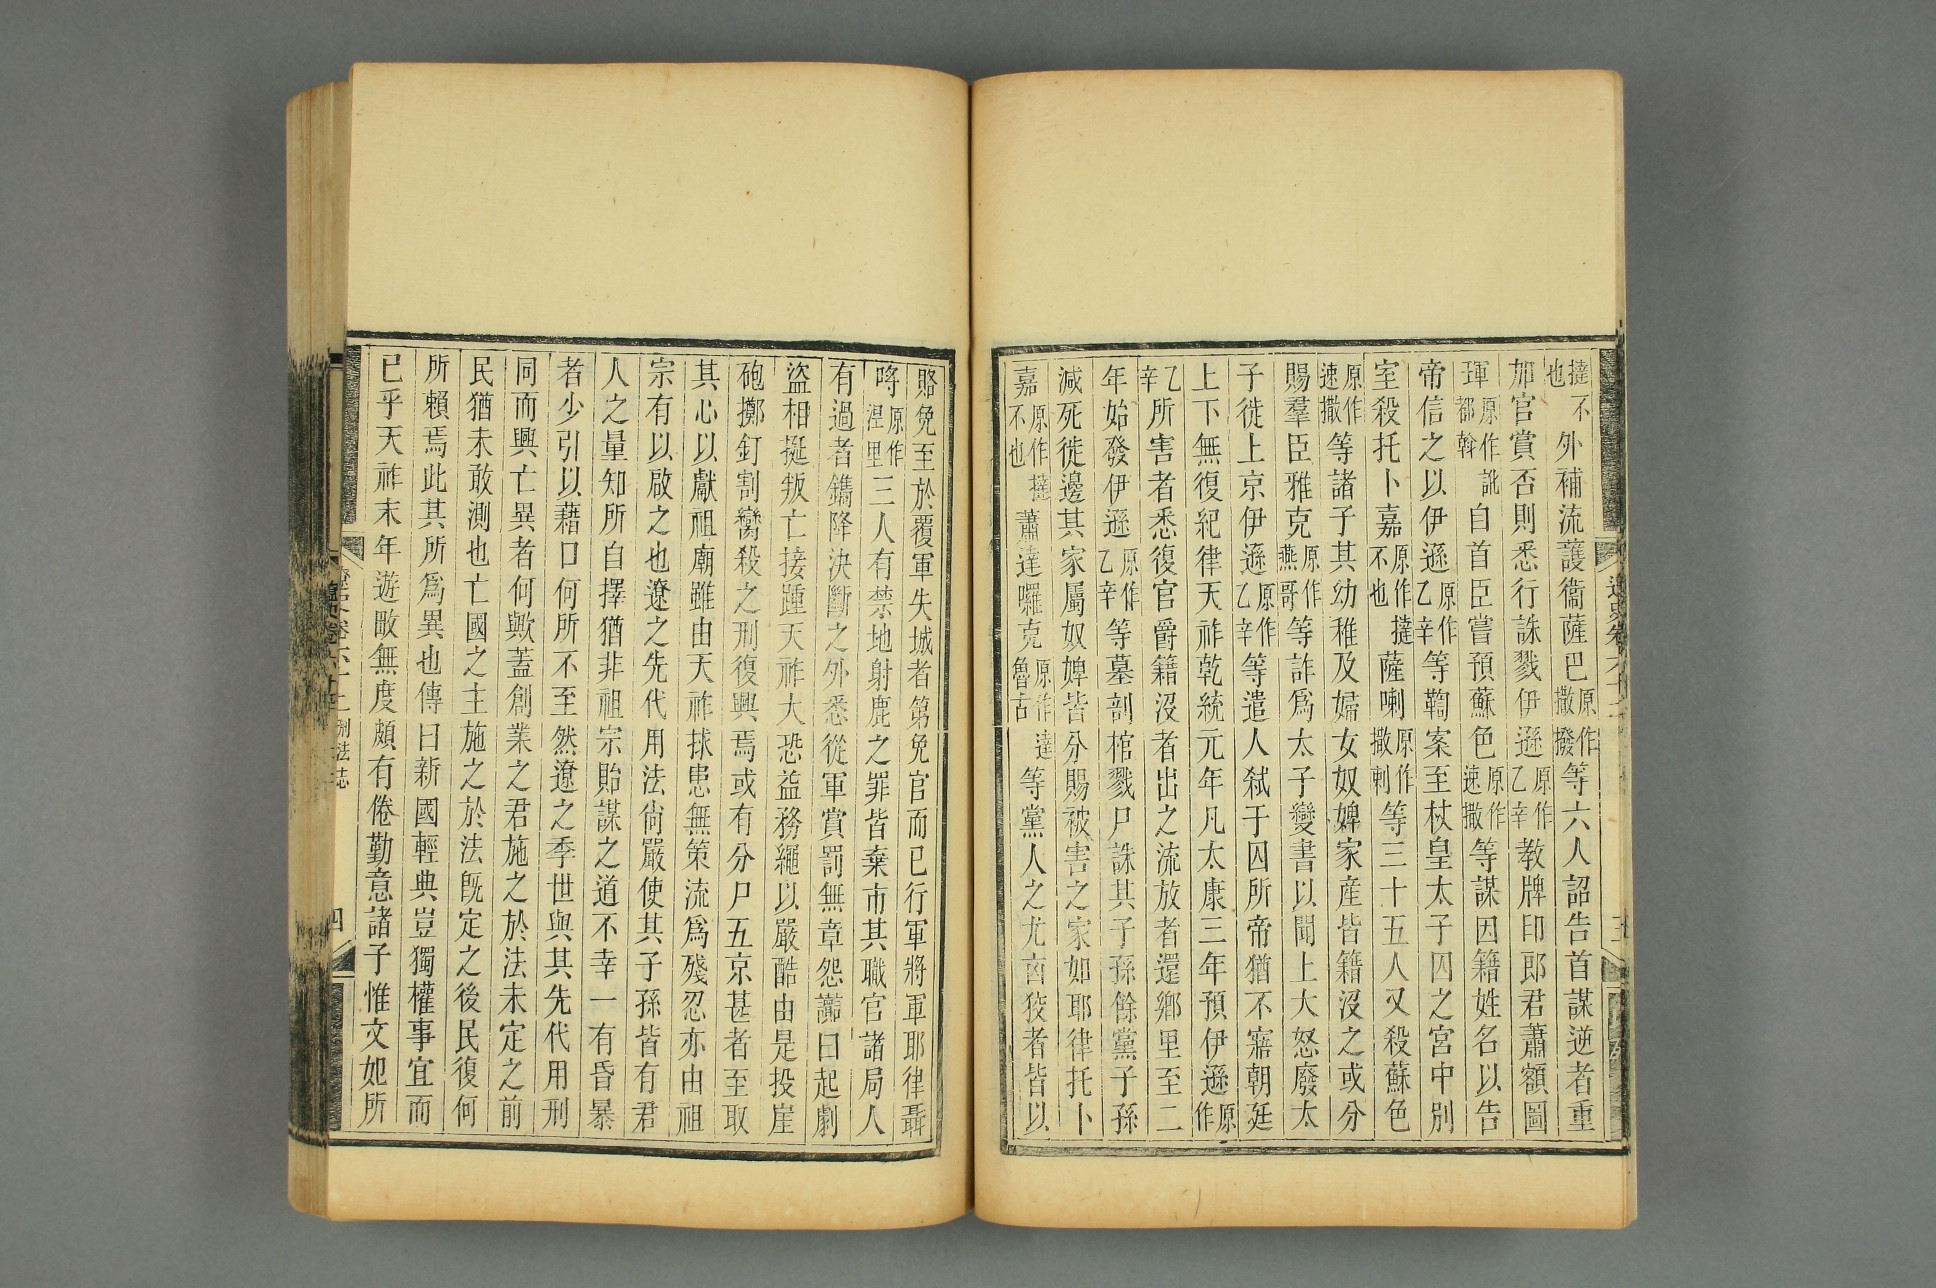 撻不也外補流護衛薩巴原作撒撥等六人詔告首謀逆者重
加官賞否則悉行誅戮伊遜原作乙辛教牌印郎君蕭額圖
琿原作訛都斡自首臣嘗預蘇色原作速撒等謀因籍姓名以告
帝信之以伊遜原作乙辛等鞫案至杖皇太子囚之宮中別
室殺托卜嘉原作撻不也薩喇原作撒剌等三十五人又殺蘇色
原作速撒等諸子其幼稚及婦女奴婢家產皆籍沒之或分
賜羣臣雅克原作燕哥等詐爲太子變書以聞上大怒廢太
子徙上京伊遜原作乙辛等遣人弑于囚所帝猶不寤朝廷
上下無復紀律天祚乾統元年凡太康三年預伊遜原作
乙辛所害者悉復官爵籍沒者出之流放者還鄉里至二
年始發伊遜原作乙辛等墓剖棺戮尸誅其子孫餘黨子孫
減死徙邊其家屬奴婢皆分賜被害之家如耶律托卜
嘉原作撻不也蕭達囉克原作達魯古等黨人之尤㐫狡者皆以
賂免至於覆軍失城者第免官而已行軍將軍耶律聶
哷原作涅里三人有禁地射鹿之罪皆棄市其職官諸局人
有過者鐫降決斷之外悉從軍賞罰無章怨讟日起劇
盜相挻叛亡接踵天祚大恐益務繩以嚴酷由是投崖
砲擲釘割臠殺之刑復興焉或有分尸五京甚者至取
其心以獻祖廟雖由天祚捄患無策流爲殘忍亦由祖
宗有以啟之也遼之先代用法尙嚴使其子孫皆有君
人之量知所自擇猶非祖宗貽謀之道不幸一有昏暴
者少引以藉口何所不至然遼之季世與其先代用刑
同而興亡異者何歟蓋創業之君施之於法未定之前
民猶未敢測也亡國之主施之於法旣定之後民復何
所賴焉此其所爲異也傳曰新國輕典豈獨權事宜而
已乎天祚末年遊畋無度頗有倦勤意諸子惟文妃所
遼史卷六十二 刑法志 四